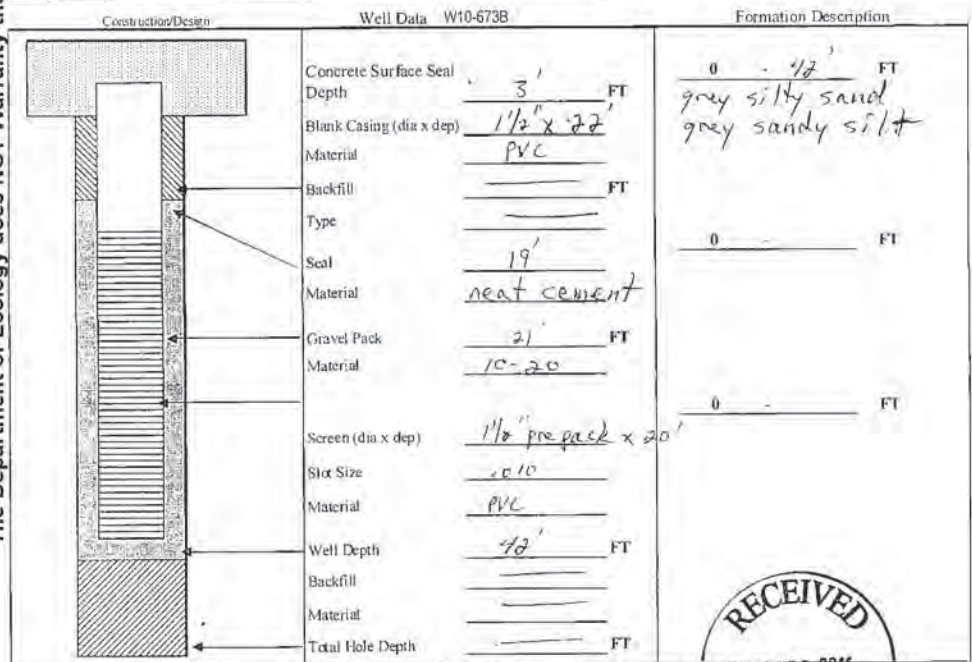 Construction/Design
Well Data W10-673B
Formation Description
Concrete Surface Seal
Depth 3' FT
Blank Casing (dia x dep) 1 1/2" x 22'
Material PVC
Backfill FT
Type
Seal 19'
Material neat cement
Gravel Pack 21' FT
Material 10-20
Screen (dia x dep) 1 1/2" prepack x 20'
Slot Size .010
Material PVC
Well Depth 42' FT
Backfill
Material
Total Hole Depth FT
0 - 42' FT
grey silty sand
grey sandy silt
0 - FT
0 - FT
RECEIVED
The Department of Ecology does NOT Warranty the